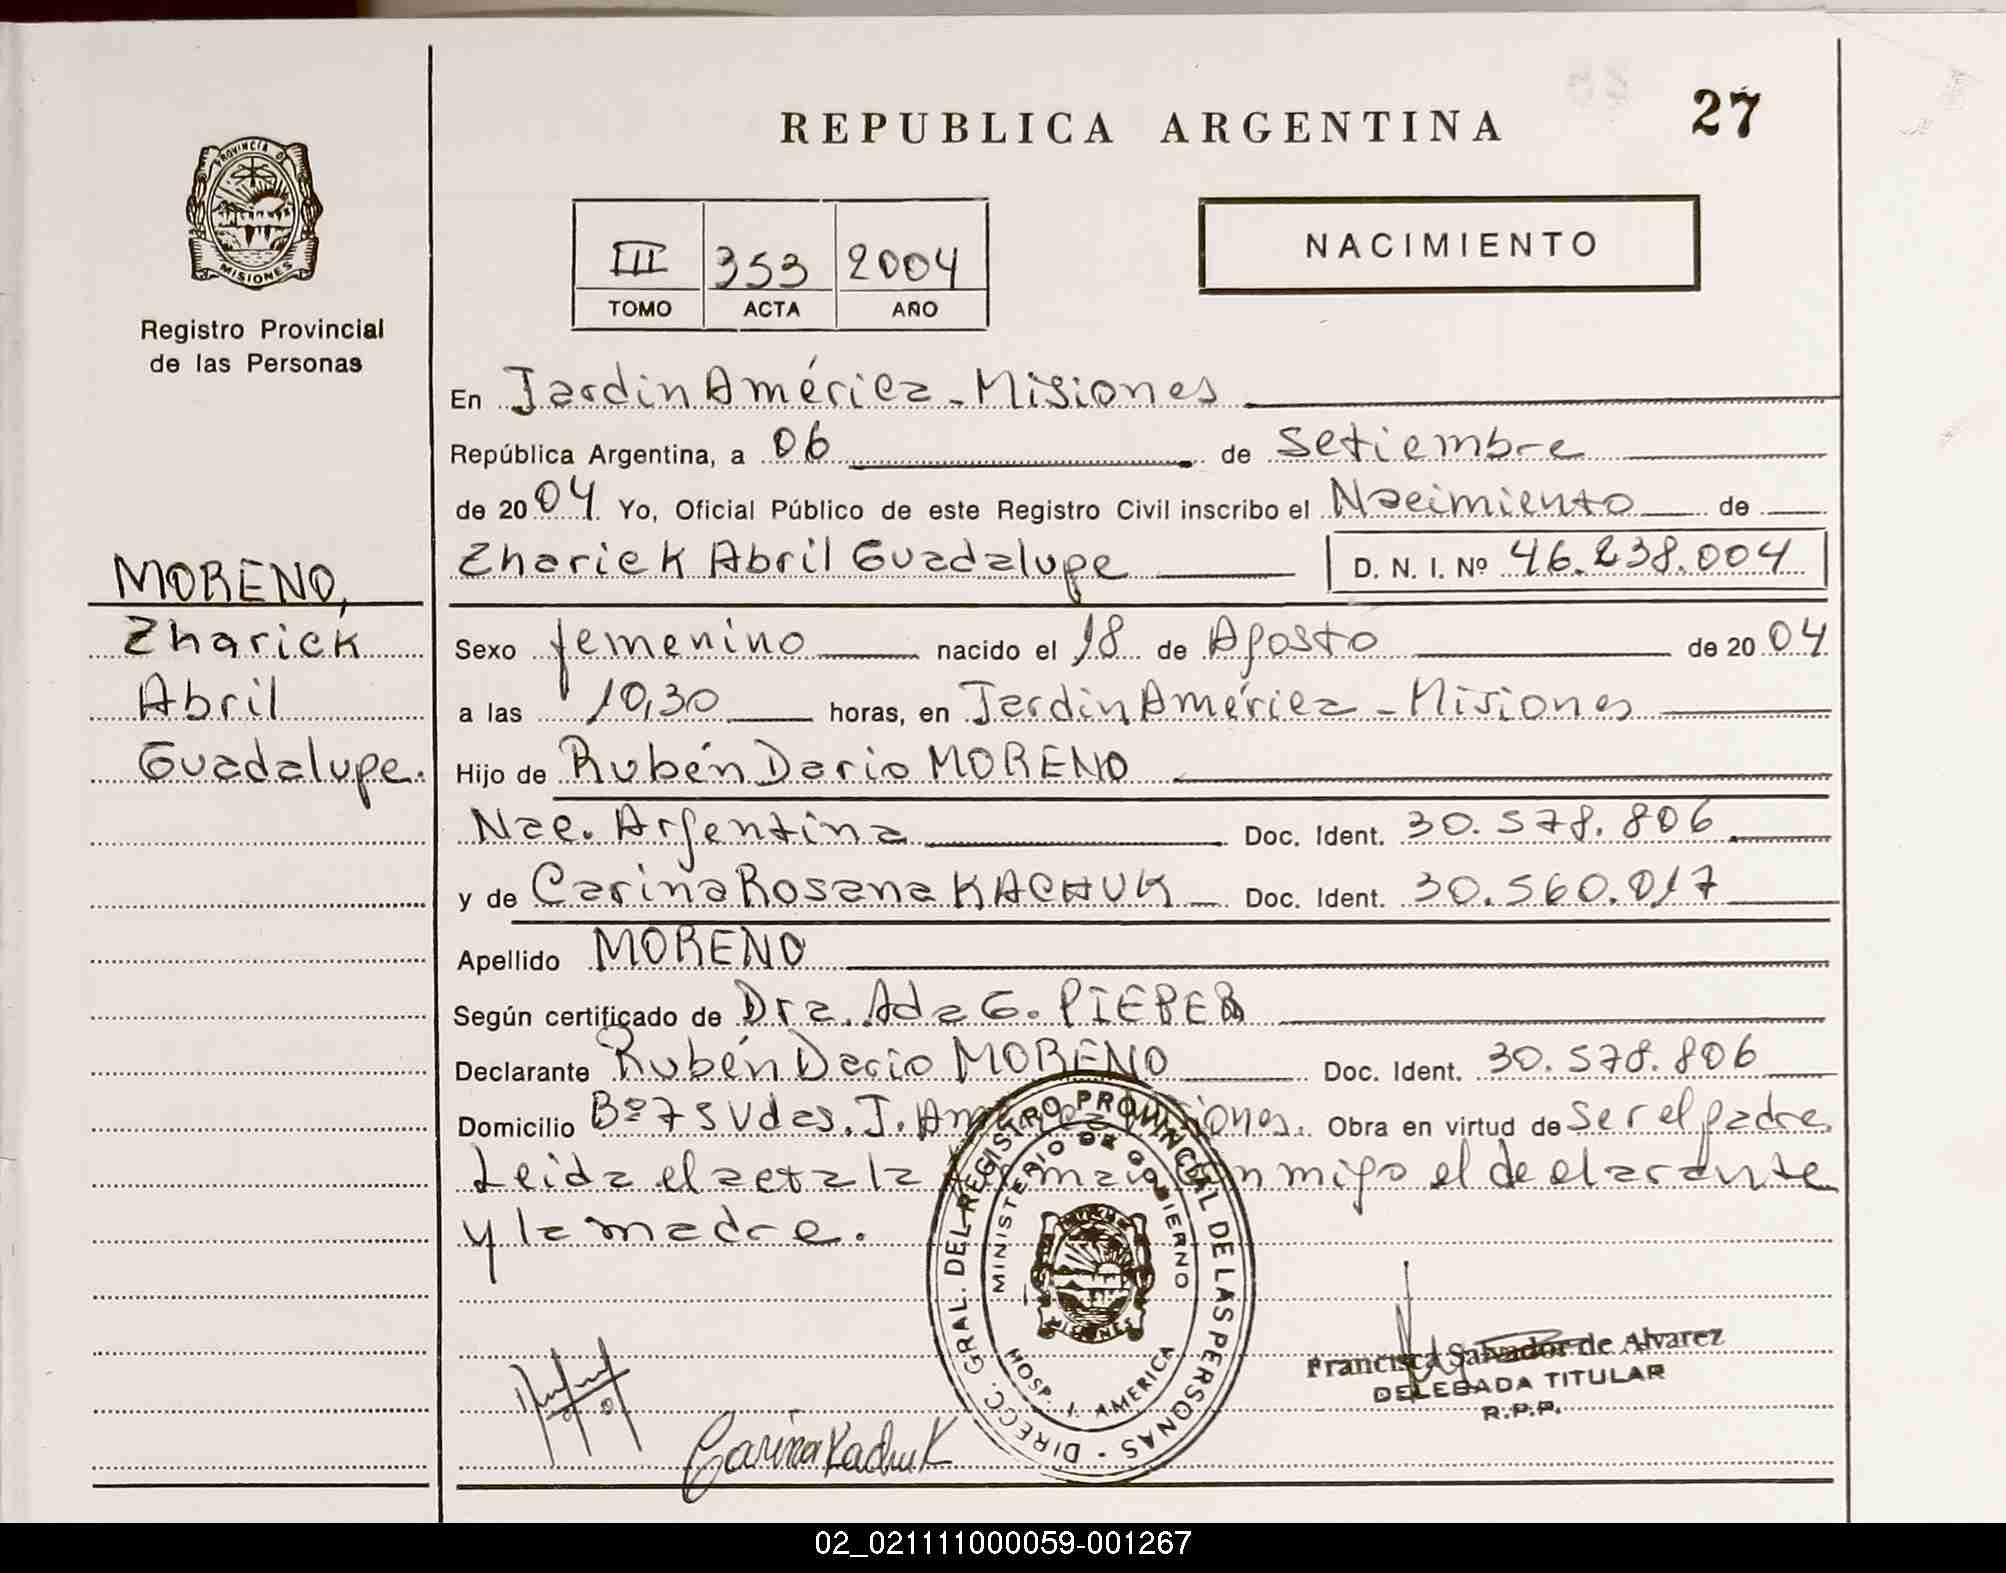 REPUBLICA ARGENTINA
27
PROVINCIA D
MISIONES
Registro Provincial
de las Personas
III 353 2004
TOMO ACTA AÑO
NACIMIENTO
En Jardin América - Misiones
República Argentina, a 06 de Setiembre
de 2004 Yo, Oficial Público de este Registro Civil inscribo el Nacimiento de
Zharick Abril Guadalupe D. N. I. Nº 46.238.004
MORENO,
Zharick
Abril
Guadalupe.
Sexo femenino nacido el 18 de Agosto de 2004
a las 10,30 horas, en Jardin América - Misiones
Hijo de Rubén Dario MORENO
Nac. Argentina Doc. Ident. 30.578.806
y de Carina Rosana KACHUK Doc. Ident. 30.560.017
Apellido MORENO
Según certificado de Dra. Ada G. PIEPER
Declarante Rubén Dario MORENO Doc. Ident. 30.578.806
Domicilio Bº 75 Vdas. J. América Misiones. Obra en virtud de ser el padre.
Leida el acta la firman conmigo el declarante
y la madre.
DIRECC. GRAL. DEL REGISTRO PROVINCIAL DE LAS PERSONAS -
MINISTERIO DE GOBIERNO
MISIONES
HOSP. J. AMERICA
Francisca Salvador de Alvarez
DELEGADA TITULAR
R.P.P.
Carina Kachuk
02_021111000059-001267